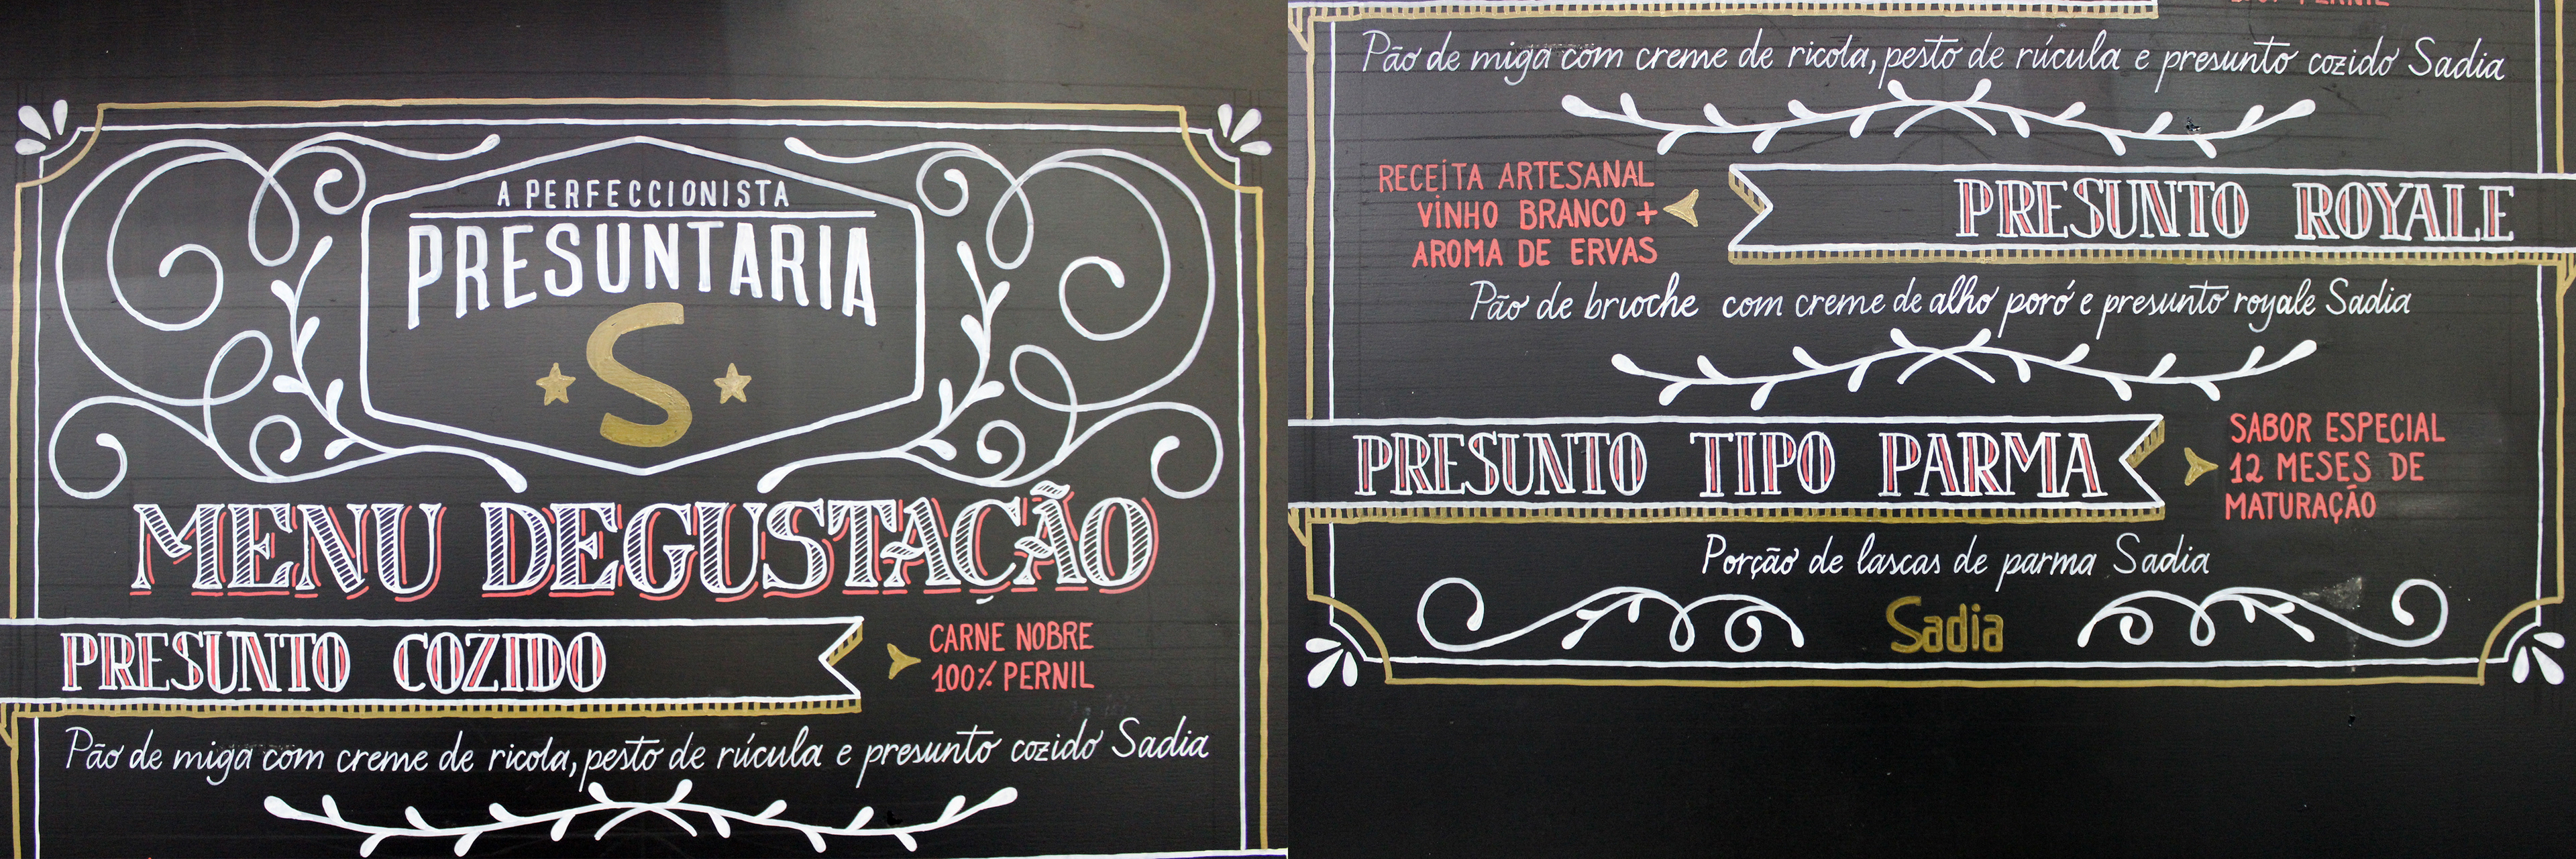 A PERFECCIONISTA
PRESUNTARIA
S
MENU DEGUSTAÇÃO
PRESUNTO COZIDO
CARNE NOBRE
100% PERNIL
Pão de miga com creme de ricola, pesto de rúcula e presunto cozido Sadia
Pão de miga com creme de ricola, pesto de rúcula e presunto cozido Sadia
RECEITA ARTESANAL
VINHO BRANCO +
AROMA DE ERVAS
PRESUNTO ROYALE
Pão de brioche com creme de alho poró e presunto royale Sadia
PRESUNTO TIPO PARMA
SABOR ESPECIAL
12 MESES DE
MATURAÇÃO
Porção de lascas de parma Sadia
Sadia